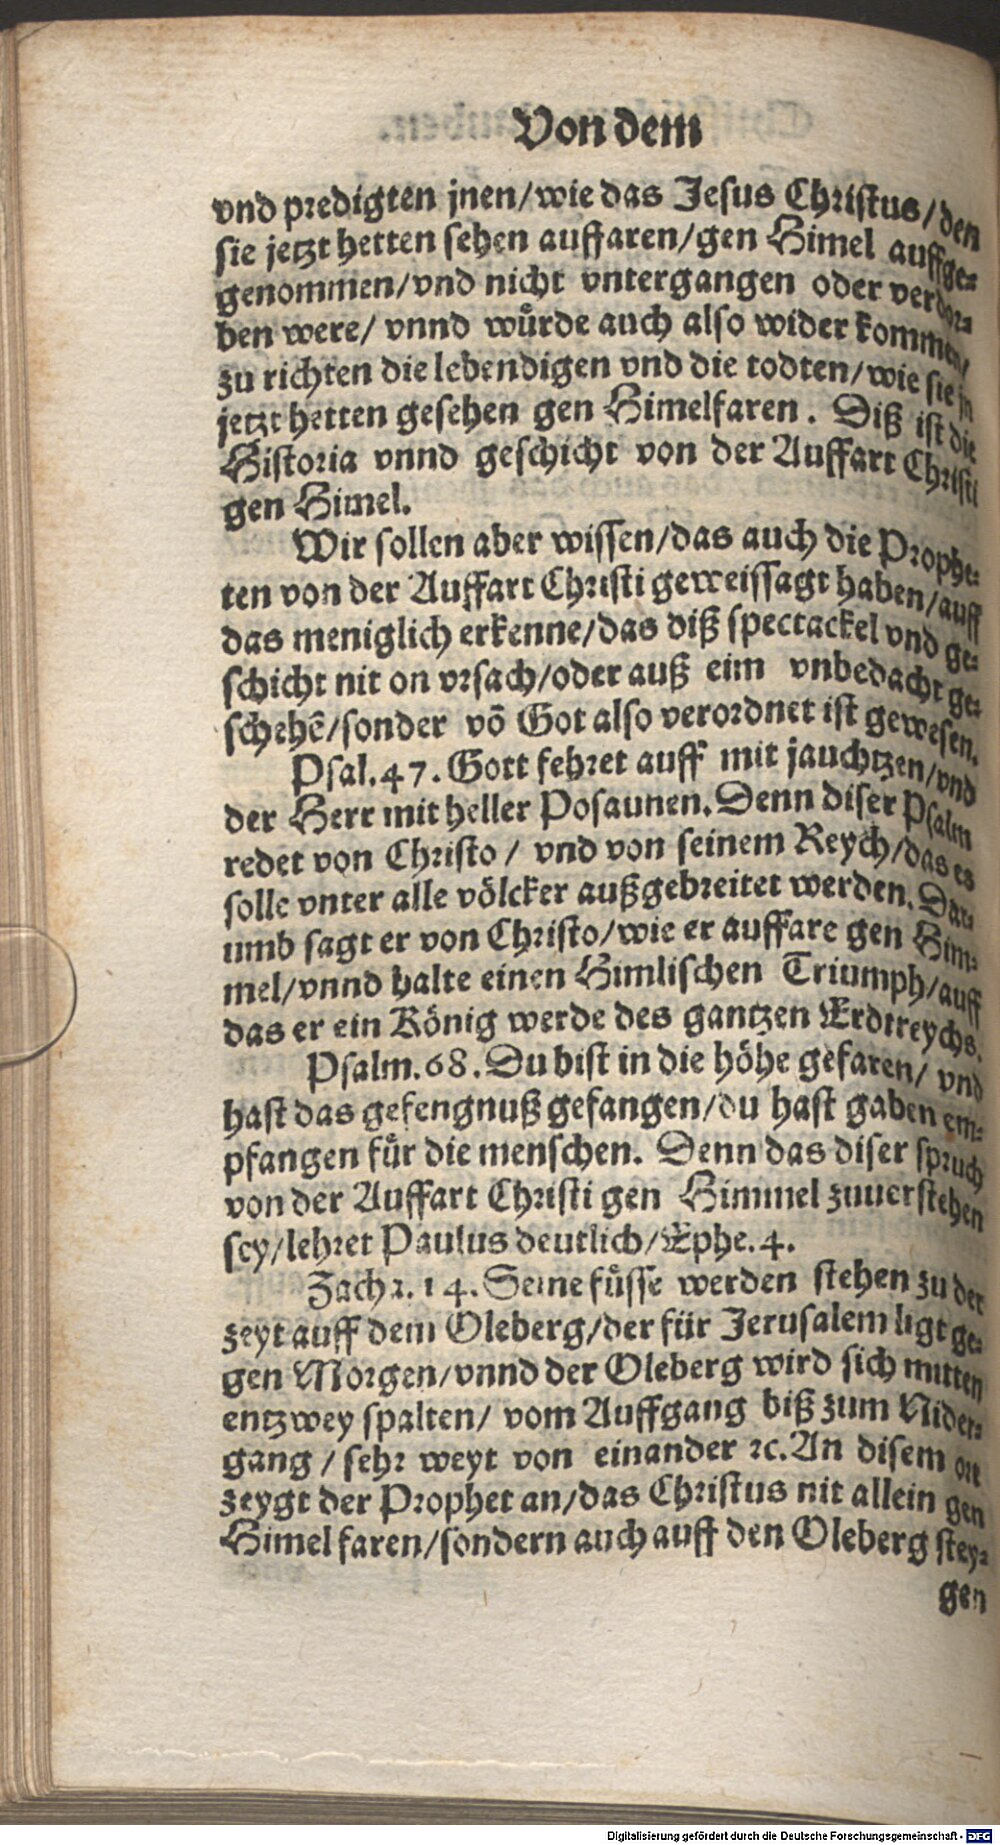 Von dem
vnd predigten jnen/wie das Jesus Christus/den
sie jetzt hetten sehen auffaren/gen Himel auffge-
genommen/vnd nicht vntergangen oder verdor-
ben were/ vnnd wuͤrde auch also wider kommen/
zu richten die lebendigen vnd die todten/wie sie jn
jetzt hetten gesehen gen Himelfaren. Diß ist die
Historia vnnd geschicht von der Auffart Christi
gen Himel.
Wir sollen aber wissen/das auch die Prophe-
ten von der Auffart Christi geweissagt haben/auff
das meniglich erkenne/das diß spectackel vnd ge-
schicht nit on vrsach/oder auß eim vnbedacht ge-
schehẽ/sonder võ Got also verordnet ist gewesen.
Psal.47. Gott fehret auff mit jauchtzen/vnd
der Herr mit heller Posaunen. Denn diser Psalm
redet von Christo / vnd von seinem Reych/das es
solle vnter alle völcker außgebreitet werden. Dar-
umb sagt er von Christo/wie er auffare gen Him-
mel/vnnd halte einen Himlischen Triumph/auff
das er ein König werde des gantzen Erdtreychs.
Psalm.68. Du bist in die höhe gefaren/ vnd
hast das gefengnuß gefangen/du hast gaben em-
pfangen fuͤr die menschen. Denn das diser spruch
von der Auffart Christi gen Himmel zuuerstehen
sey/lehret Paulus deutlich/Ephe.4.
Zachr.14. Seine fuͤsse werden stehen zu der
zeyt auff dem Oleberg/der für Jerusalem ligt ge-
gen Morgen/vnnd der Oleberg wird sich mitten
entzwey spalten/ vom Auffgang biß zum Nider-
gang / sehr weyt von einander ꝛc. An disem ort
zeygt der Prophet an/das Christus nit allein gen
Himel faren/sondern auch auff den Oleberg stey-
gen
Digitalisierung gefördert durch die Deutsche Forschungsgemeinschaft - DFG